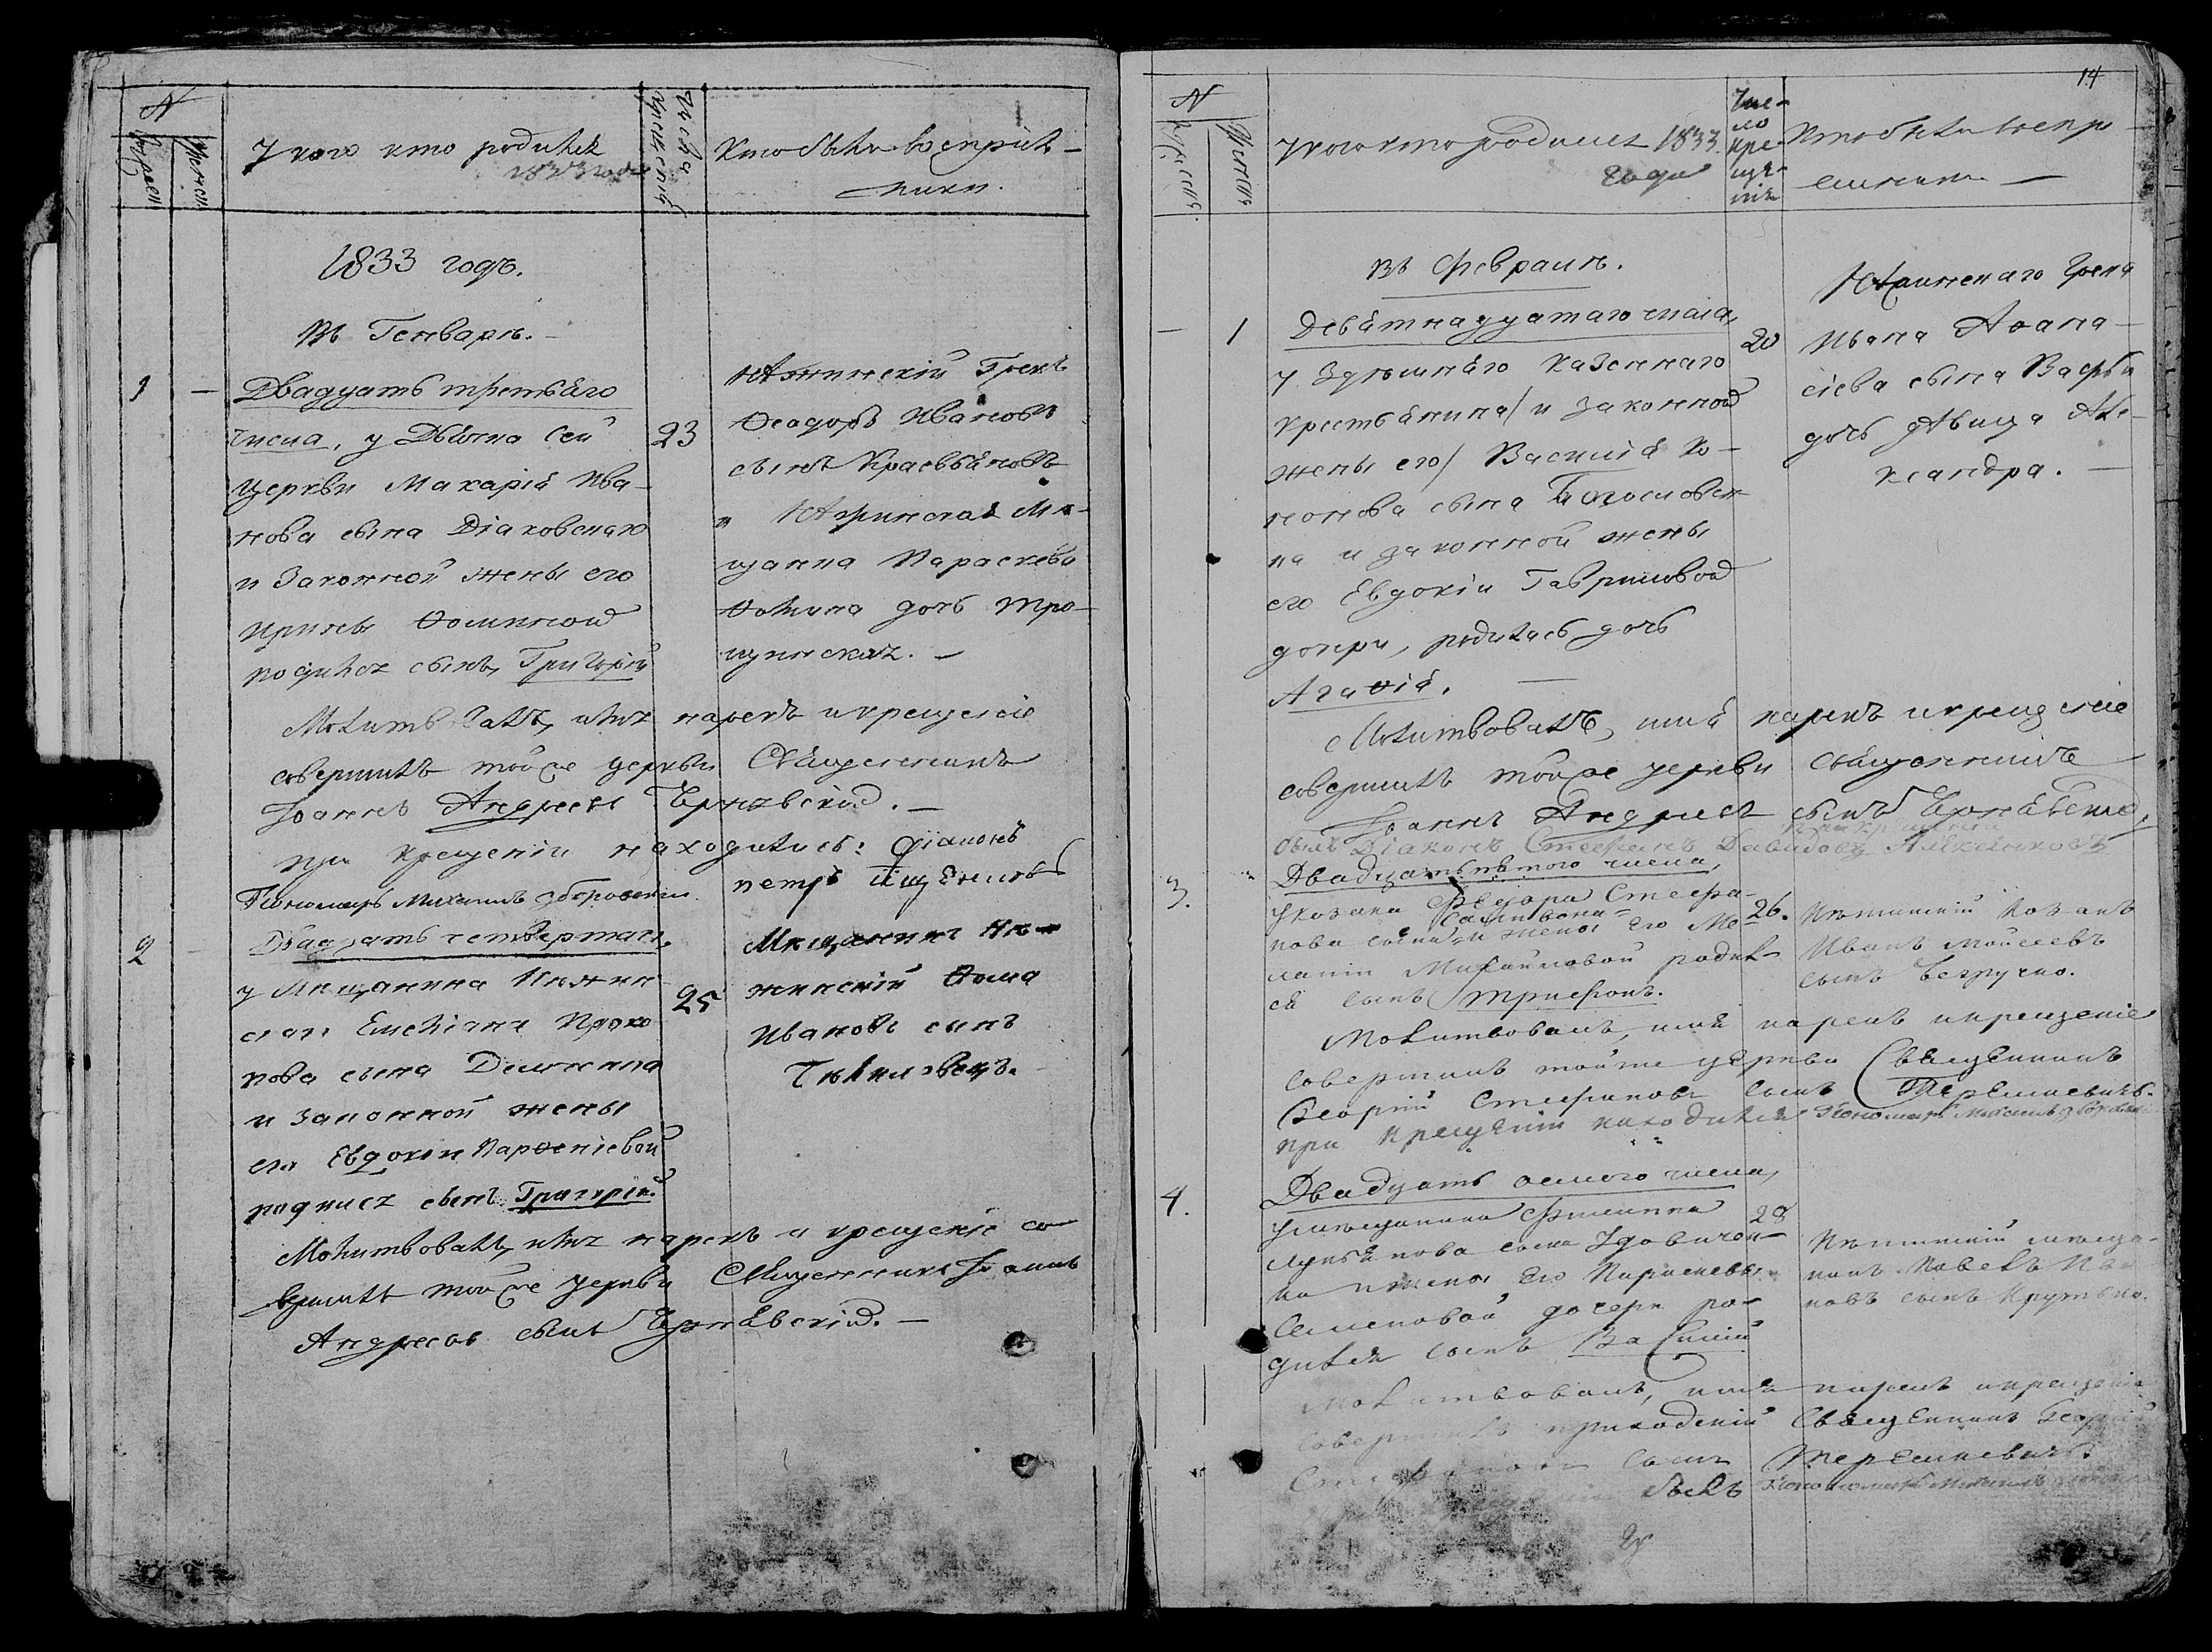 N
мужеска
женска
У кого кто родился
1833 года
Числа
крещенія
Кто были воспріем-
ники.
1833 годъ.
Въ Генваре.
1 —
Двадцать третьяго
числа, у Дьячка сей
церкви Макарія Ива-
нова сына Діаковскаго
и законной жены его
Ирины Ѳоминой
родился сынъ, Григорій
23
Нѣжинскій Грекъ
Ѳеодоръ Ивановъ
сынъ
и Нѣжинская Мѣ-
щанка Параскева
Ѳомина дочь Тро-
щинская. —
Молитвовалъ, имя нарекъ и крещеніе
совершилъ тойже церкви Священникъ
Іоаннъ Андреевъ Чернявскій. —
При крещеніи находились: Діаконъ
Петръ
Пономарь Михаилъ Зборовскій
2 —
Двадцать четвертаго,
у Мѣщанина Нѣжин-
скаго Емеліана Проко-
пова сына
и законной жены
его Евдокіи Парѳеніевой
родился сынъ Григорій.
25
Мѣщанинъ Нѣ-
жинскій Ѳома
Ивановъ сынъ
Молитвовалъ, имя нарекъ и крещеніе со-
вершилъ тойже церкви Священникъ Іоаннъ
Андреевъ сынъ Чернявскій. —
14
N
мужеска
женска
У кого кто родился 1833
года
Чис-
ло
кре-
ще-
нія
Кто были воспрі-
емники —
Въ Февралѣ.
— 1
Девятнадцатаго числа,
у здѣшняго казеннаго
крестьянина / и законной
жены его / Василія Ко-
нонова сына
на и законной жены
его Евдокіи Гавриловой
дочери, родилась дочь
Агаѳія. —
20
Нѣжинскаго Грека
Ивана Аѳана-
сіева сына
дочь дѣвица Але-
ксандра. —
Молитвовалъ, имя нарекъ и крещеніе
совершилъ тойже церкви священникъ
Іоаннъ Андреевъ сынъ Чернявскій,
былъ Діаконъ Стефанъ Давидовъ
3.
Двадцать пятого числа,
у козака Феодора Стефа-
нова сына и жены его Ме-
ланіи Михайловой родил-
ся сынъ Трифонъ.
26.
Нѣжинскій козакъ
Иванъ Мойсеевъ
сынъ Безручко.
Молитвовалъ, имя нарекъ и крещеніе
совершилъ тойже церкви Священникъ
Георгій Стефановъ сынъ Терешкевичъ.
при крещеніи находился Пономарь Михаилъ Зборовскій
4.
Двадцать осмого числа,
у мѣщанина Филиппа
Лукьянова сына
и жены его Параскевы
Семеновой дочери ро-
дился сынъ Василій
28
Нѣжинскій мѣща-
нинъ Павелъ Ива-
новъ сынъ
Молитвовалъ, имя нарекъ и крещеніе
совершилъ приходскій Священникъ Георгій
Стефановъ сынъ Терешкевичъ.
былъ Пономарь Михаилъ